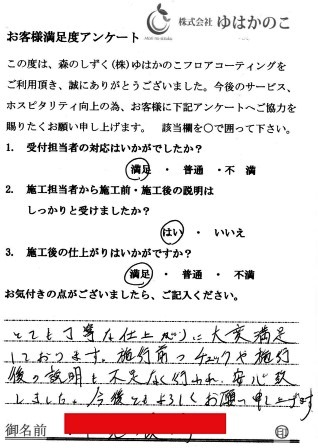 株式会社 ゆはかのこ
お客様満足度アンケート
この度は、森のしずく(株)ゆはかのこフロアコーティングを
ご利用頂き、誠にありがとうございました。今後のサービス、
ホスピタリティ向上の為、お客様に下記アンケートへご協力を
賜りたくお願い申し上げます。 該当欄を○で囲って下さい。
1. 受付担当者の対応はいかがでしたか?
満足 ・ 普通 ・ 不 満
2. 施工担当者から施工前・施工後の説明は
しっかりと受けましたか?
はい ・ いいえ
3. 施工後の仕上がりはいかがですか?
満足 ・ 普通 ・ 不満
お気付きの点がございましたら、ご記入ください。
とても丁寧な仕上がりに大変満足
しております。施行前のチェックや施行
後の説明も不足なく行われ、安心致
しました。今後ともよろしくお願い申し上げます
御名前 印